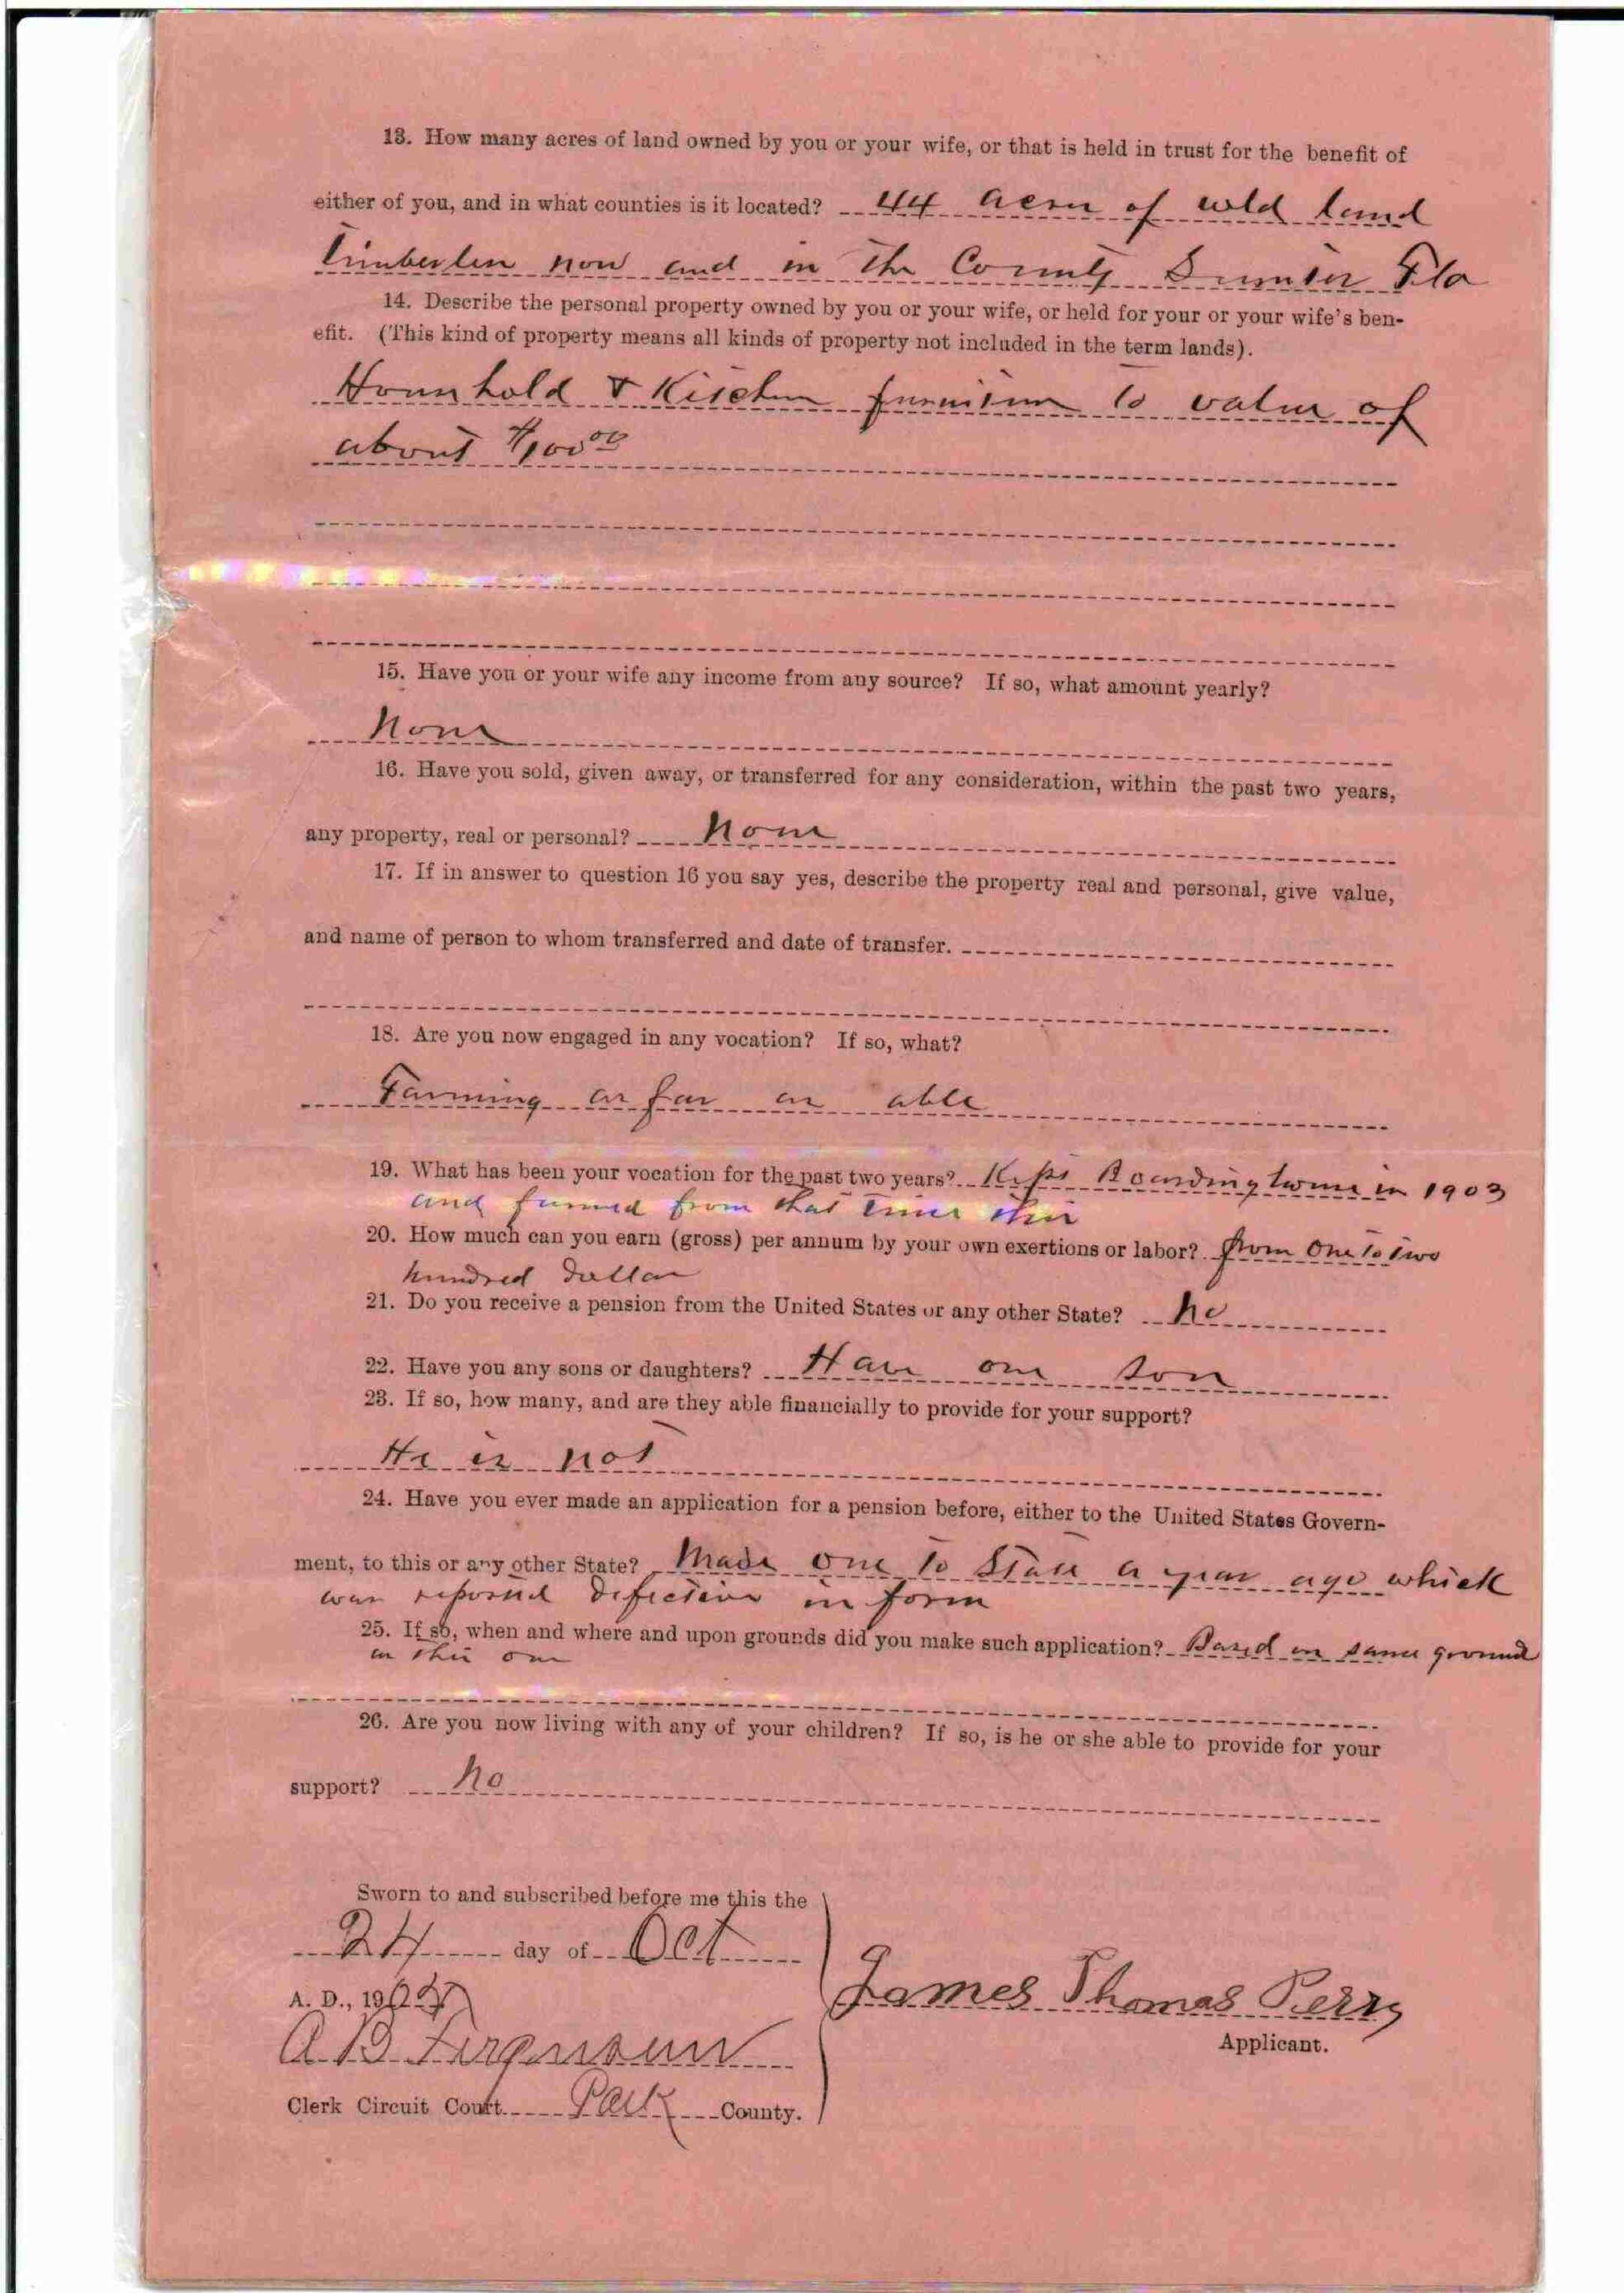 13. How many acres of land owned by you or your wife, or that is held in trust for the benefit of
either of you, and in what counties is it located? 44 acres of wild land
Timberless now and in the County Sumter Fla
14. Describe the personal property owned by you or your wife, or held for your or your wife's ben-
efit. (This kind of property means all kinds of property not included in the term lands).
Household & Kitchen furniture to value of
about $100.00
15. Have you or your wife any income from any source? If so, what amount yearly?
None
16. Have you sold, given away, or transferred for any consideration, within the past two years,
any property, real or personal? None
17. If in answer to question 16 you say yes, describe the property real and personal, give value,
and name of person to whom transferred and date of transfer.
18. Are you now engaged in any vocation? If so, what?
Farming as far as able
19. What has been your vocation for the past two years? Kept Boarding house in 1903
and farmed from that time
20. How much can you earn (gross) per annum by your own exertions or labor? from One to Two
hundred Dollars
21. Do you receive a pension from the United States or any other State? No
22. Have you any sons or daughters? Have one son
23. If so, how many, and are they able financially to provide for your support?
He is not
24. Have you ever made an application for a pension before, either to the United States Govern-
ment, to this or any other State? Made one to State a year ago which
was reported defective in form
25. If so, when and where and upon grounds did you make such application? Based on same ground
as this one
26. Are you now living with any of your children? If so, is he or she able to provide for your
support? No
Sworn to and subscribed before me this the
24 day of Oct
A. D., 190
A B Ferguson
James Thomas Perry
Applicant.
Clerk Circuit Court County.